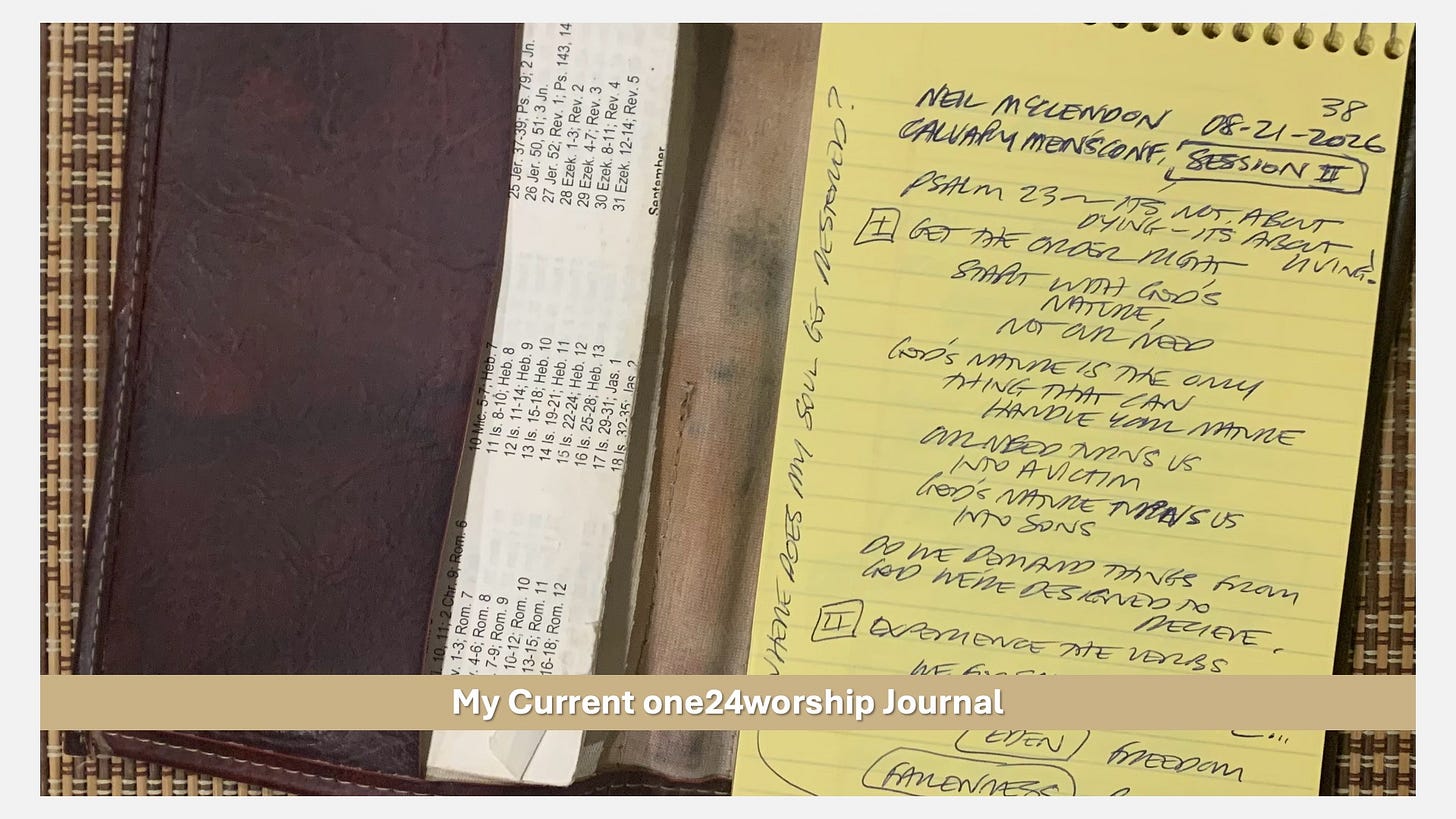 25 Jer. 37-39; Ps. 79; 2 Jn.
26 Jer. 50, 51; 3 Jn.
27 Jer. 52; Rev. 1; Ps. 143, 14
28 Ezek. 1-3; Rev. 2
29 Ezek. 4-7; Rev. 3
30 Ezek. 8-11; Rev. 4
31 Ezek. 12-14; Rev. 5
September
10 Mic. 5-7; Heb. 7
11 Is. 8-10; Heb. 8
12 Is. 11-14; Heb. 9
13 Is. 15-18; Heb. 10
14 Is. 19-21; Heb. 11
15 Is. 22-24; Heb. 12
16 Is. 25-28; Heb. 13
17 Is. 29-31; Jas. 1
18 Is. 32-35; Jas. 2
10, 11; 2 Chr. 9; Rom. 6
v. 1-3; Rom. 7
v. 4-6; Rom. 8
7-9; Rom. 9
10-12; Rom. 10
13-15; Rom. 11
16-18; Rom. 12
WHERE DOES MY SOUL GET RESTORED?
38
NEIL McCLENDON 08-21-2026
CALVARY MEN'S CONF, SESSION II
PSALM 23 ~ ITS NOT ABOUT
DYING - ITS ABOUT
LIVING!
I GET THE ORDER RIGHT
START WITH GOD'S
NATURE,
NOT OUR NEED
GOD'S NATURE IS THE ONLY
THING THAT CAN
HANDLE YOUR NATURE
OUR NEED TURNS US
INTO A VICTIM
GOD'S NATURE TURNS US
INTO SONS
DO WE DEMAND THINGS FROM
GOD WE'RE DESIGNED TO
RECIEVE.
II EXPERIENCE THE VERBS
WE
My Current one24worship Journal
EDEN
FREEDOM
FALLENNESS